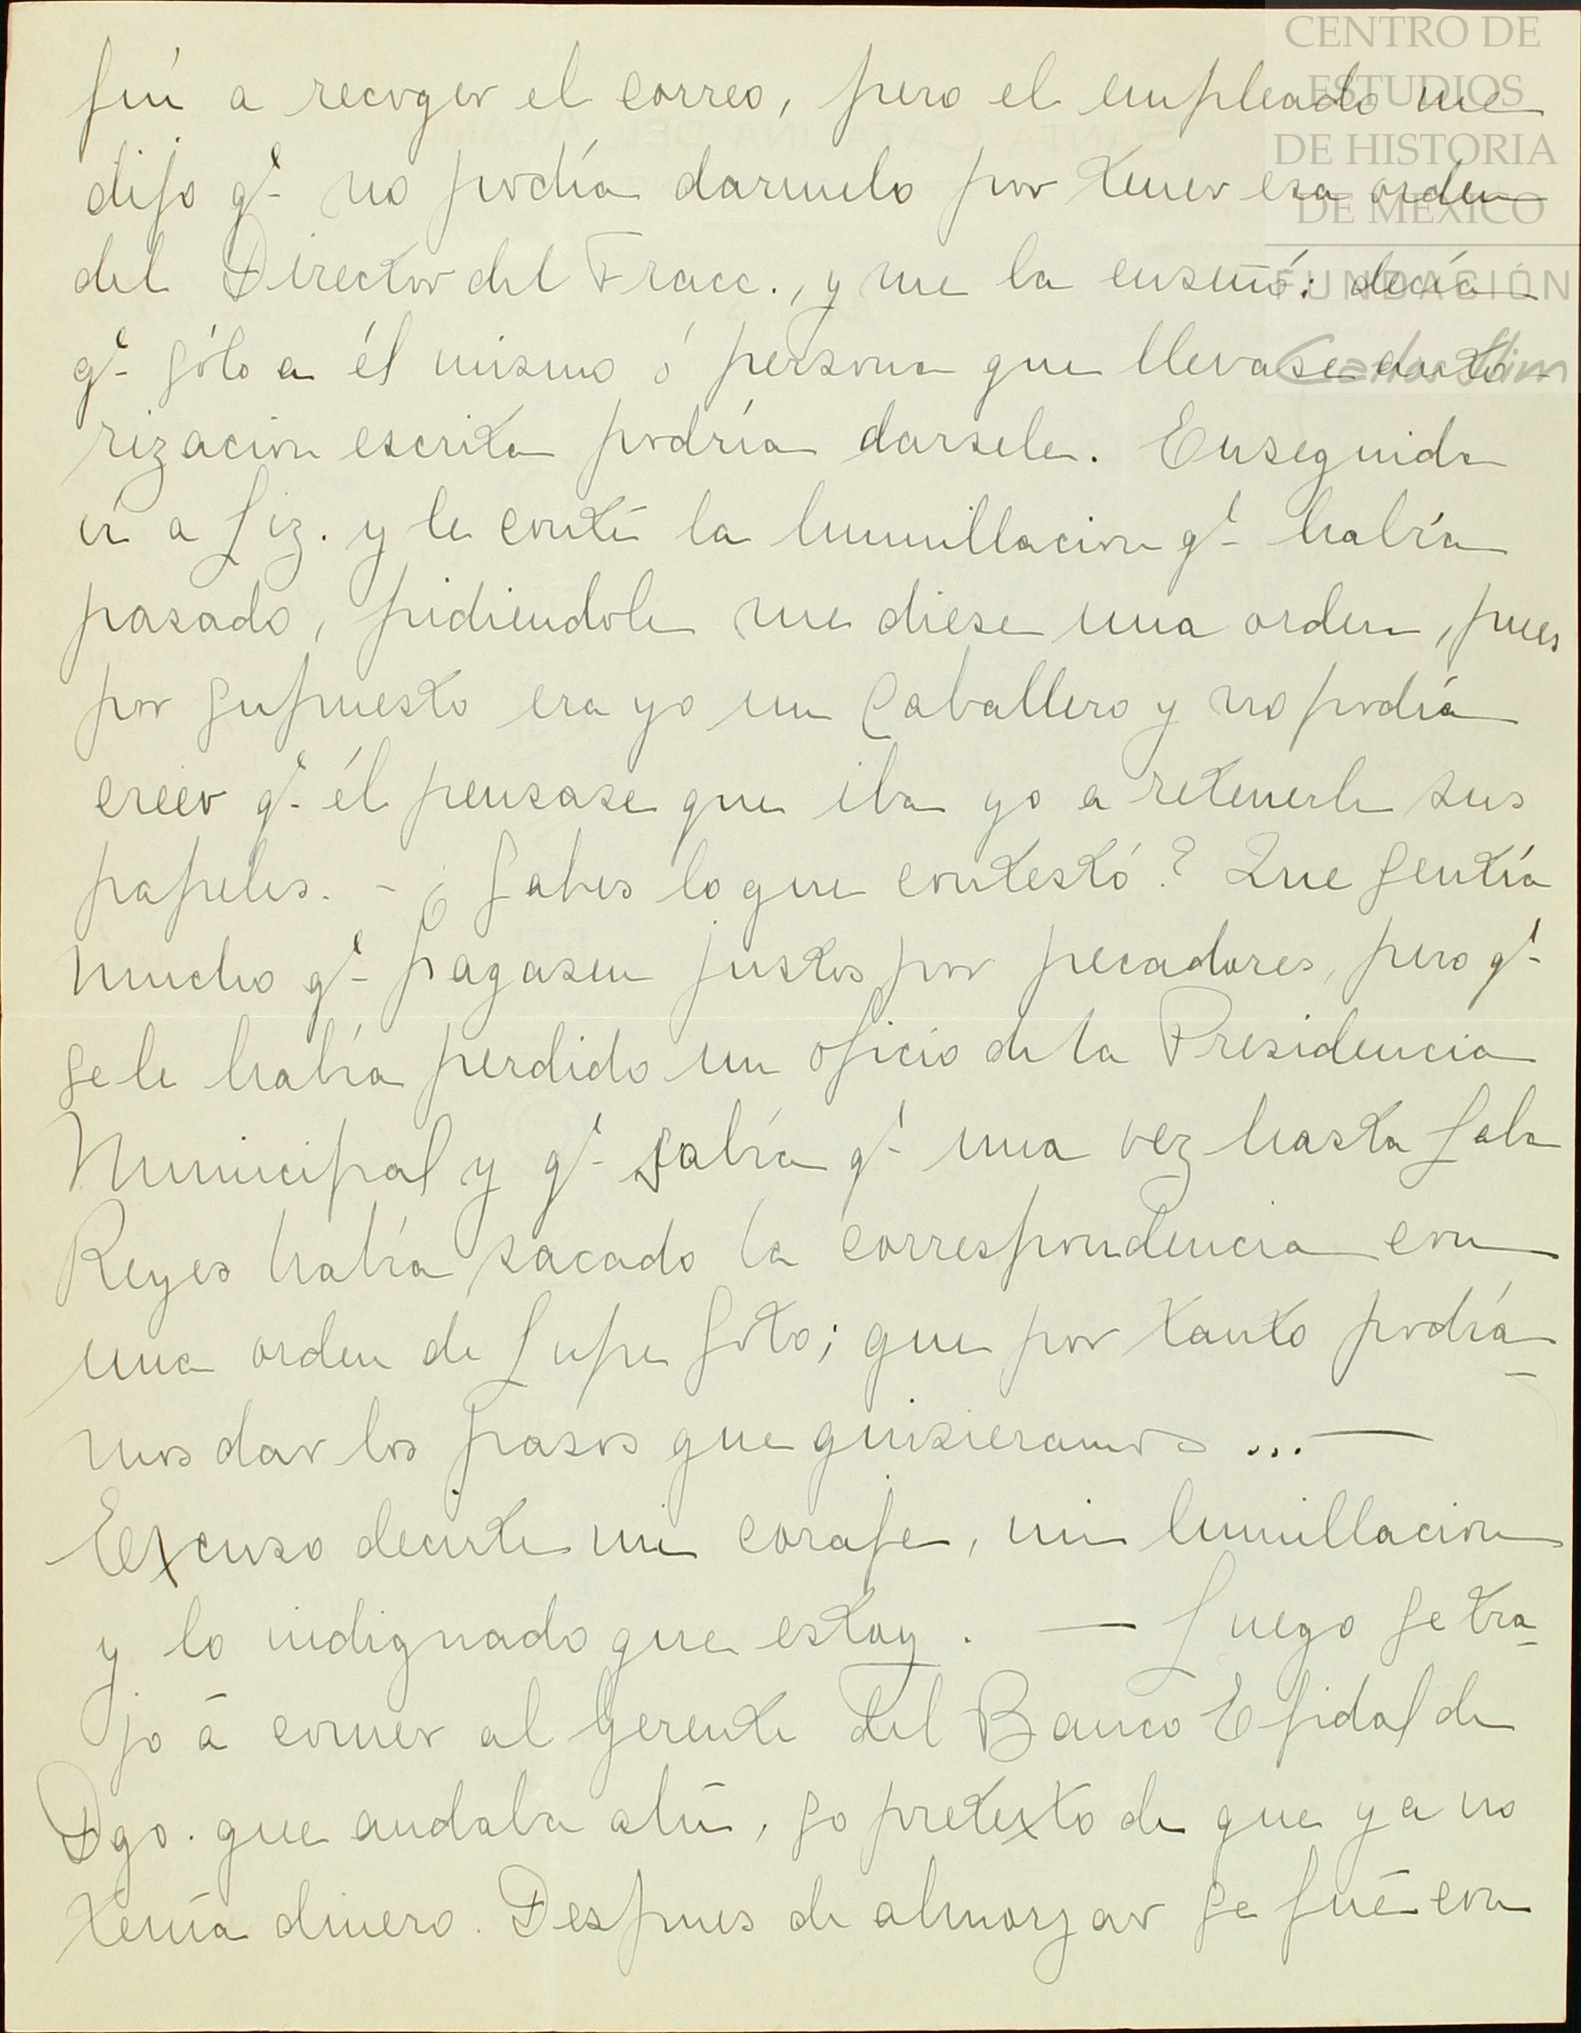 CENTRO DE
ESTUDIOS
DE HISTORIA
DE MEXICO
FUNDACIÓN
Carlos Slim
fuí a recoger el correo, pero el empleado me
dijo q^e no podía darmelo por tener esa orden
del Director del Fracc., y me la enseñó: decía
q^e sólo a él mismo ó persona que llevase auto-
rizacion escrita podría darsele. Enseguida
ví a Liz. y le conté la hummillacion q^e había
pasado, pidiendole me diese una orden, pues
por supuesto era yo un Caballero y no podía
creer q^e él pensase que iba yo a retenerle sus
papeles. - ¿Sabes lo que contestó? Que sentía
mucho q^e pagasen justos por pecadores, pero q^e
se le había perdido un oficio de la Presidencia
Municipal y q^e sabía q^e una vez hasta Lala
Reyes había sacado la correspondencia con
una orden de Lupe Soto; que por tanto podría-
mos dar los pasos que quisieramos ... —
Excuso decirte mi coraje, mi humillacion
y lo indignado que estoy. — Luego se tra-
jo á comer al Gerente del Banco Ejidal de
Dgo. que andaba ahí, so pretexto de que ya no
tenía dinero. Despues de almorzar se fué con